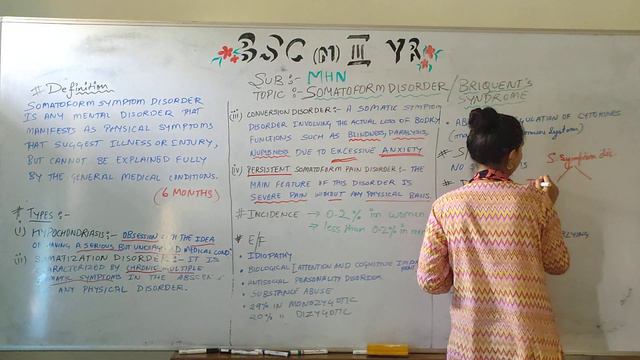 BSC (N) III YR
SUB :- MHN
TOPIC :- SOMATOFORM DISORDER / BRIQUENT'S
SYNDROME
# Definition
SOMATOFORM SYMPTOM DISORDER
IS ANY MENTAL DISORDER THAT
MANIFESTS AS PHYSICAL SYMPTOMS
THAT SUGGEST ILLNESS OR INJURY,
BUT CANNOT BE EXPLAINED FULLY
BY THE GENERAL MEDICAL CONDITIONS.
(6 MONTHS)
# TYPES :-
(i) HYPOCHONDRIASIS :- OBSESSION WITH THE IDEA
OF HAVING A SERIOUS BUT MEDICAL
ii) SOMATIZATION DISORDER :- IT IS
CHARACTERIZED BY CHRONIC MULTIPLE
SOMATIC SYMPTOMS IN THE
ANY PHYSICAL DISORDER.
(iii) CONVERSION DISORDER :- A SOMATIC SYMPTOM
DISORDER INVOLVING THE ACTUAL LOSS OF BODILY
FUNCTIONS SUCH AS BLINDNESS, PARALYSIS,
NUMBNESS DUE TO EXCESSIVE ANXIETY
(iv) PERSISTENT SOMATOFORM PAIN DISORDER :- THE
MAIN FEATURE OF THIS DISORDER IS
SEVERE PAIN WITHOUT ANY PHYSICAL BASIS.
# INCIDENCE → 0.2% in women
→ less than 0.2% in
# E/F
• IDIOPATHY
• BIOLOGICAL (ATTENTION AND COGNITIVE
• ANTISOCIAL PERSONALITY DISORDER
• SUBSTANCE ABUSE
• 29% IN MONOZYGOTIC
20% " DIZYGOTIC
OF CYTOKINES
NO
S. symptom dis